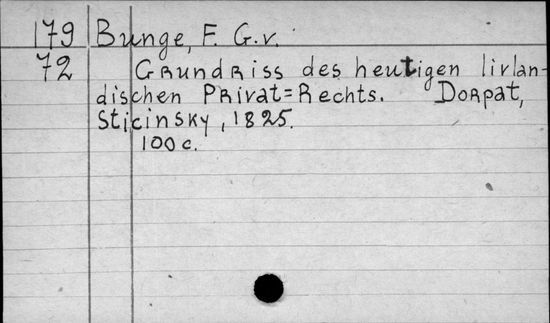 179 Bunge, F. G.v.
72 Grundriss des heutigen livlan-
dischen Privat=Rechts. Dorpat,
Sticinsky, 1825.
100 c.